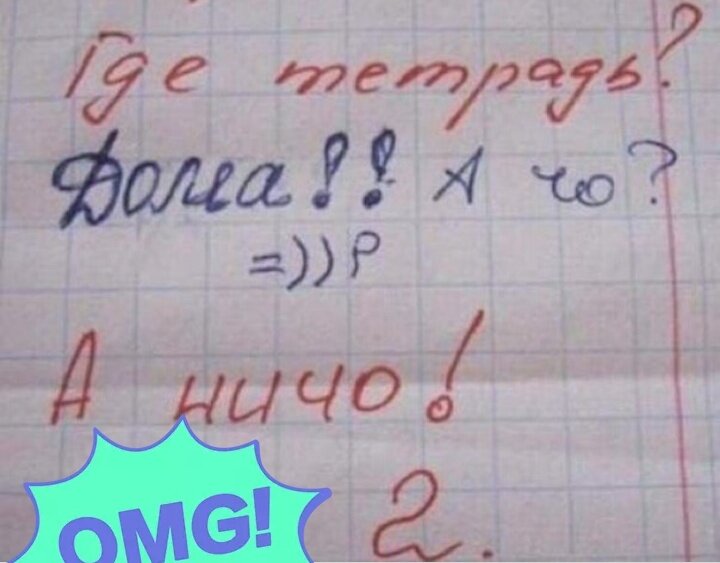 Где тетрадь?
Дома!! А чо?
=))Р
А ничо!
2.
OMG!